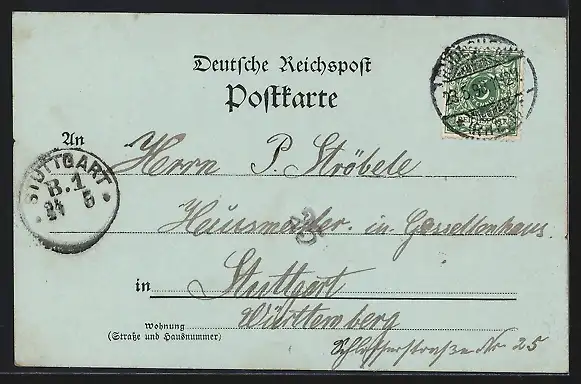 Deutsche Reichspost
Postkarte
An
Herrn P. Ströbele
Hausmeister in Gesellenhaus
in Stuttgart
Württemberg
Wohnung
(Straße und Hausnummer)
Schlosserstraße Nr. 25
STUTTGART
B.1
24 5
23.5.